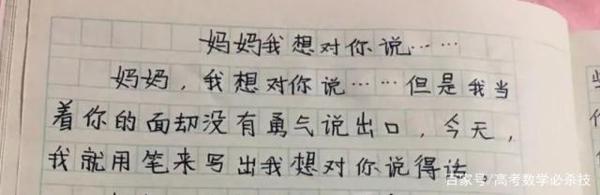 妈妈我想对你说……
妈妈，我想对你说……但是我当
着你的面却没有勇气说出口，今天，
我就用笔来写出我想对你说得话。
百家号/高考数学必杀技